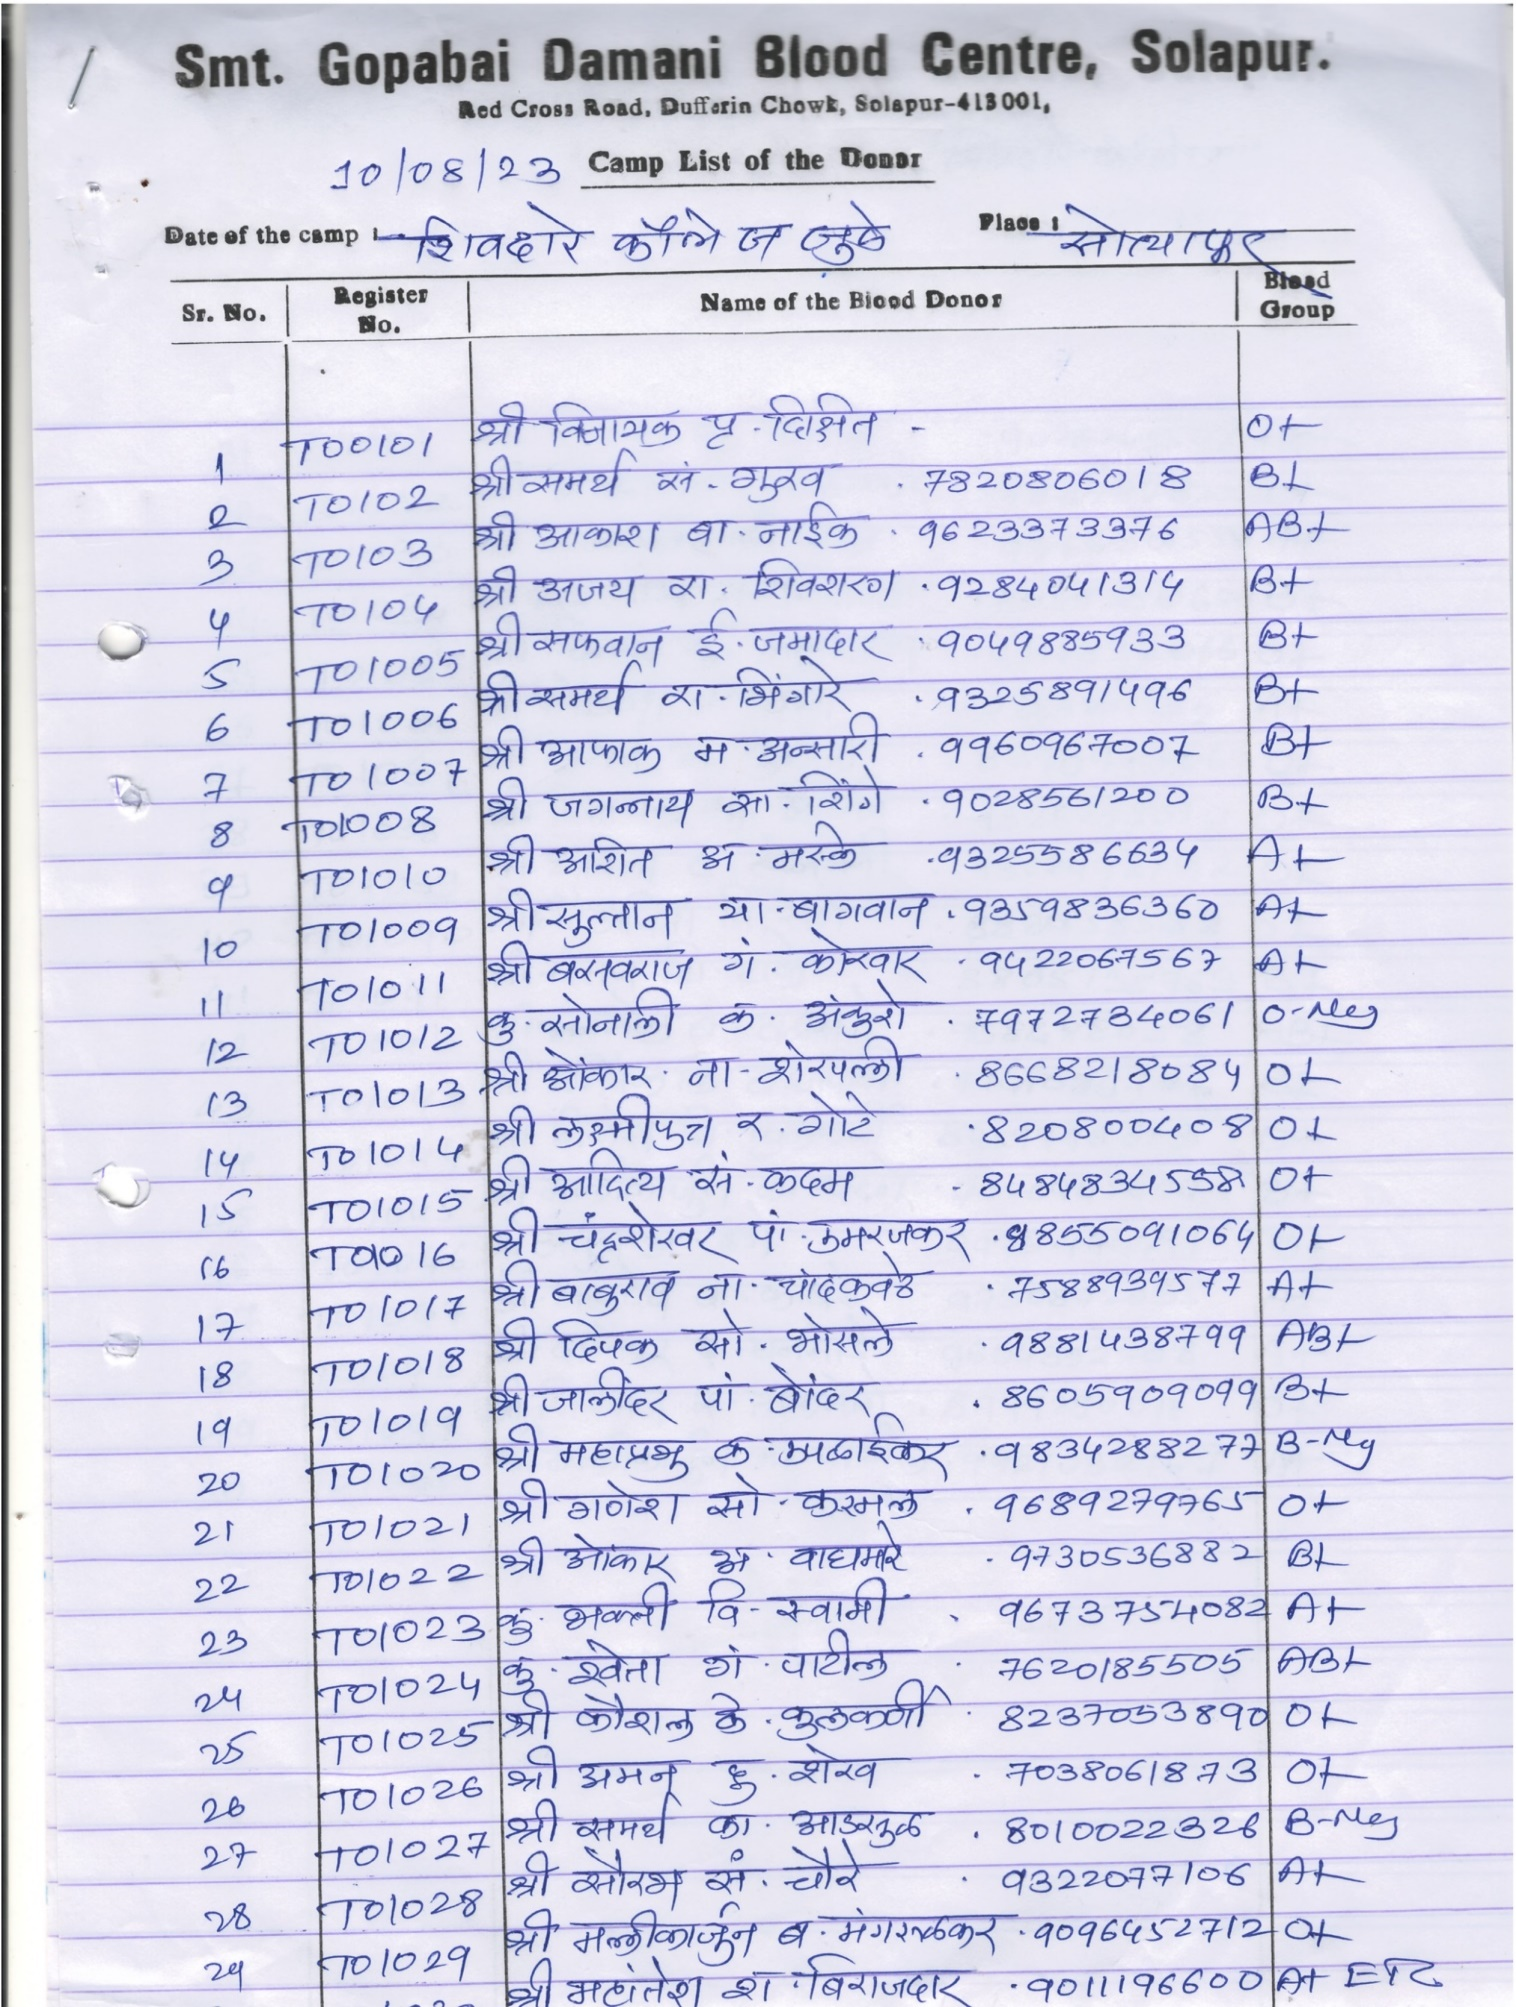 Smt. Gopabai Damani Blood Centre, Solapur.
Red Cross Road, Dufferin Chowk, Solapur-413001,
10/08/23 Camp List of the Donor
Date of the camp : शिवदारे कॉलेज जुळे Place : सोलापूर
Sr. No. Register No. Name of the Blood Donor Blood Group
1 T00101 श्री विनायक प्र. दिक्षित - O+
2 T0102 श्री समर्थ सं. गुरव . 7820806018 B+
3 T0103 श्री आकाश बा. नाईक . 9623373376 AB+
4 T0104 श्री अजय रा. शिवशरण . 9284041314 B+
5 T01005 श्री सफवान ई. जमादार . 9049885933 B+
6 T01006 श्री समर्थ रा. भिंगारे . 9325891496 B+
7 T01007 श्री आफाक म. अन्सारी . 9960967007 B+
8 T01008 श्री जगन्नाथ सा. शिंगे . 9028561200 B+
9 T01010 श्री आशित अ. मस्के . 9325586634 A+
10 T01009 श्री सुल्तान या. बागवान . 9359836360 A+
11 T01011 श्री बसवराज गं. कोरवार . 9422067567 A+
12 T01012 कु. सोनाली क. अंकुशे . 7972784061 O-Neg
13 T01013 श्री ओंकार ना. शेरपल्ली . 8668218084 O+
14 T01014 श्री लक्ष्मीपुत्र र. गोटे . 820800408 O+
15 T01015 श्री आदित्य सं. कदम - 8484834558 O+
16 T01016 श्री चंद्रशेखर पां. उमरजकर . 9855091064 O+
17 T01017 श्री बाबुराव ना. चांदकवठे . 7588939577 A+
18 T01018 श्री दिपक सो. भोसले . 9881438799 AB+
19 T01019 श्री जालींदर पां. बोंदर . 8605909099 B+
20 T01020 श्री महाप्रभु क. . 9834288277 B-Neg
21 T01021 श्री गणेश सो. करमल . 9689279765 O+
22 T01022 श्री ओंकार अं. वाघमारे . 9730536882 B+
23 T01023 कु. भक्ती वि. स्वामी . 9673754082 A+
24 T01024 कु. श्वेता गं. पाटील . 7620185505 AB+
25 T01025 श्री कौशल के. कुलकर्णी . 8237053890 O+
26 T01026 श्री अमन हु. शेख . 7038061873 O+
27 T01027 श्री समर्थ का. . 8010022326 B-Neg
28 T01028 श्री सौरभ सं. चौरे . 9322077106 A+
29 T01029 श्री मल्लीकार्जुन ब. मंगरुळकर . 9096452712 O+
श्री महांतेश शं. बिराजदार . 9011196600 A+ ETC